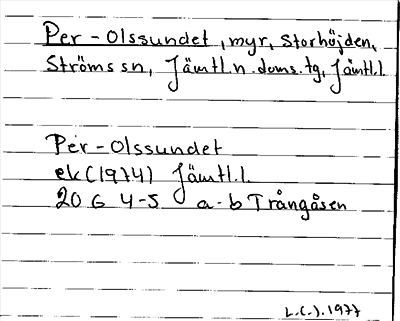 Per-Olssundet, myr, Storhöjden,
Ströms sn, Jämtl.n.doms.tg, Jämtl.l.
Per-Olssundet
ek (1974) Jämtl.l.
20 G 4-5 a-b Trångåsen
L.(-).1977